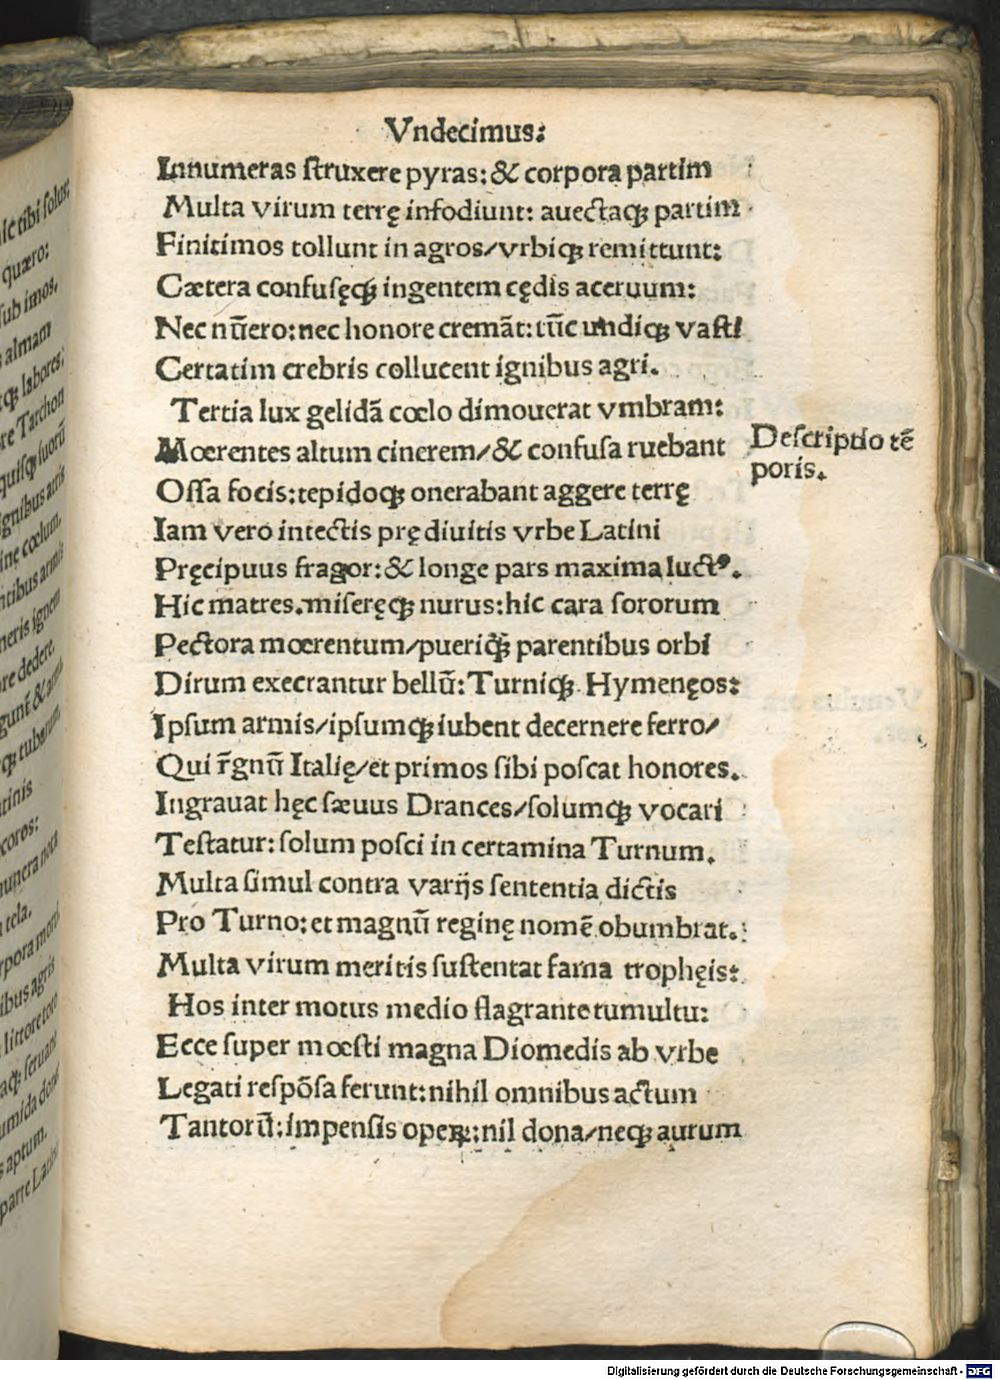 Vndecimus:
Innumeras ſtruxere pyras: & corpora partim
Multa virum terrę infodiunt: auectaqꝫ partim
Finitimos tollunt in agros/vrbiqꝫ remittunt:
Cætera confuſęqꝫ ingentem cędis aceruum:
Nec nūero: nec honore cremāt: tūc vndiqꝫ vaſti
Certatim crebris collucent ignibus agri.
Tertia lux gelidā cœlo dimouerat vmbram:
Mœrentes altum cinerem/& confuſa ruebant
Oſſa focis: tepidoqꝫ onerabant aggere terrę
Iam vero intectis prędiuitis vrbe Latini
Pręcipuus fragor: & longe pars maxima luctꝰ.
Hic matres.miſeręqꝫ nurus: hic cara ſororum
Pectora mœrentum/pueriqꝫ parentibus orbi
Dirum execrantur bellū: Turniqꝫ Hymenęos:
Ipſum armis/ipſumqꝫ iubent decernere ferro/
Qui r̄gnū Italię/et primos ſibi poſcat honores.
Ingrauat hęc ſæuus Drances/ſolumqꝫ vocari
Teſtatur: ſolum poſci in certamina Turnum.
Multa ſimul contra varijs ſententia dictis
Pro Turno: et magnū reginę nomē obumbrat.
Multa virum meritis ſuſtentat fama trophęis:
Hos inter motus medio flagrante tumultu:
Ecce ſuper mœſti magna Diomedis ab vrbe
Legati reſpōſa ferunt: nihil omnibus actum
Tantorū: impenſis opeꝝ: nil dona/neqꝫ aurum
Deſcriptio tē
poris.
ſolus:
quæro:
ſub imos.
almam
labores:
Tarchon
ſuorū
cœlum.
armis
ignem
dedere.
tinis
munera nota
tela.
agris
aptum.
Digitalisierung gefördert durch die Deutsche Forschungsgemeinschaft - DFG